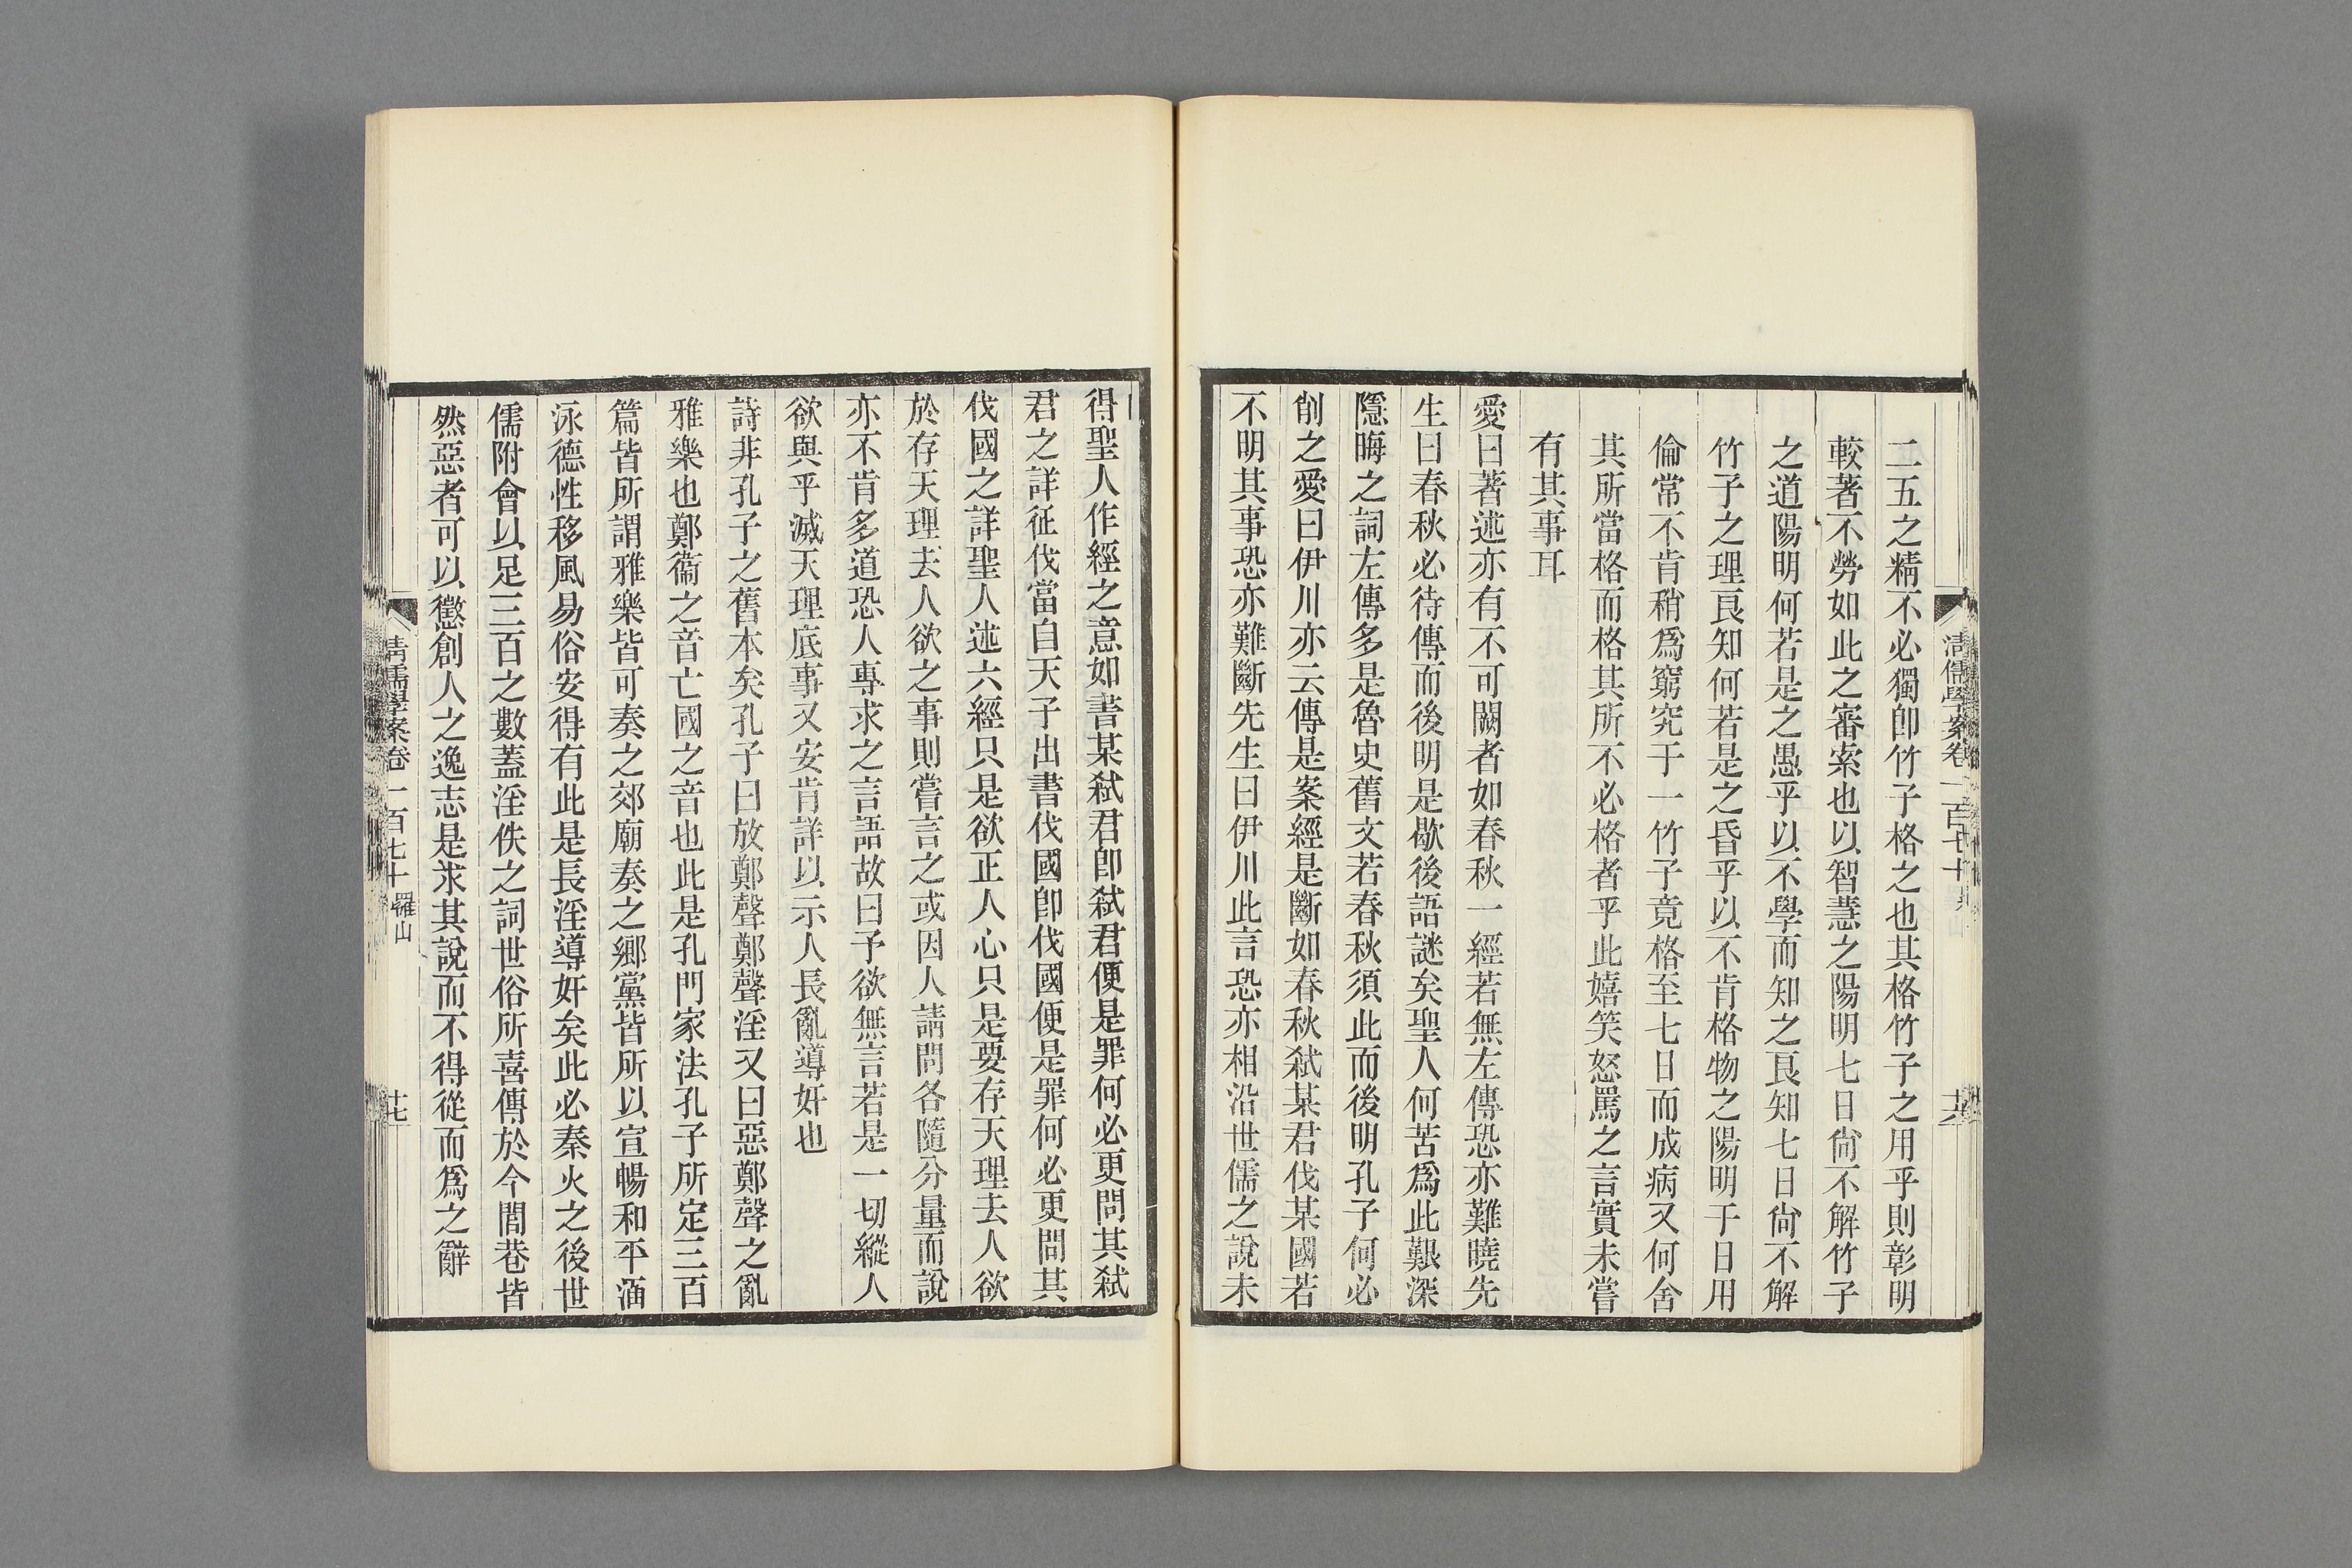 二五之精不必獨卽竹子格之也其格竹子之用乎則彰明
較著不勞如此之審索也以智慧之陽明七日尙不解竹子
之道陽明何若是之愚乎以不學而知之良知七日尙不解
竹子之理良知何若是之昏乎以不肯格物之陽明于日用
倫常不肯稍爲窮究于一竹子竟格至七日而成病又何舍
其所當格而格其所不必格者乎此嬉笑怒罵之言實未嘗
有其事耳
愛曰著述亦有不可闕者如春秋一經若無左傳恐亦難曉先
生曰春秋必待傳而後明是歇後語謎矣聖人何苦爲此艱深
隱晦之詞左傳多是魯史舊文若春秋須此而後明孔子何必
削之愛曰伊川亦云傳是案經是斷如春秋弒某君伐某國若
不明其事恐亦難斷先生曰伊川此言恐亦相沿世儒之說未
清儒學案卷一百七十
十六
得聖人作經之意如書某弒君卽弒君便是罪何必更問其弒
君之詳征伐當自天子出書伐國卽伐國便是罪何必更問其
伐國之詳聖人述六經只是欲正人心只是要存天理去人欲
於存天理去人欲之事則嘗言之或因人請問各隨分量而說
亦不肯多道恐人專求之言語故曰予欲無言若是一切縱人
欲與乎滅天理底事又安肯詳以示人長亂導奸也
詩非孔子之舊本矣孔子曰放鄭聲鄭聲淫又曰惡鄭聲之亂
雅樂也鄭衞之音亡國之音也此是孔門家法孔子所定三百
篇皆所謂雅樂皆可奏之郊廟奏之鄉黨皆所以宣暢和平涵
泳德性移風易俗安得有此是長淫導奸矣此必秦火之後世
儒附會以足三百之數蓋淫佚之詞世俗所喜傳於今閭巷皆
然惡者可以懲創人之逸志是求其說而不得從而爲之辭
清儒學案卷一百七十 羅山
十七